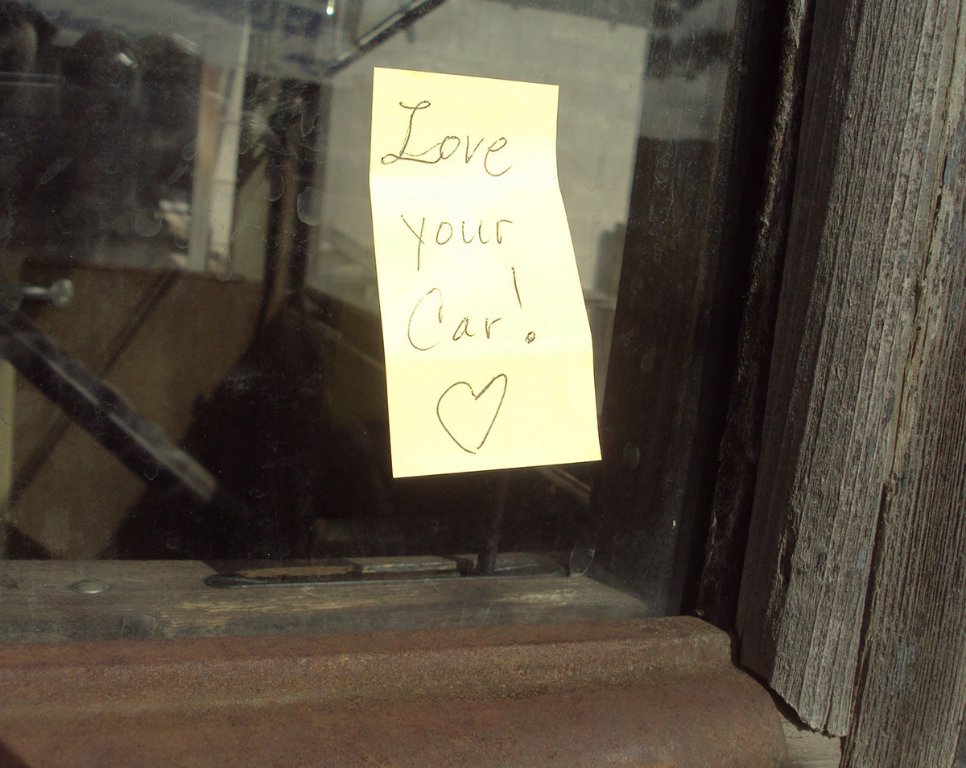 Love
your
Car!
♡